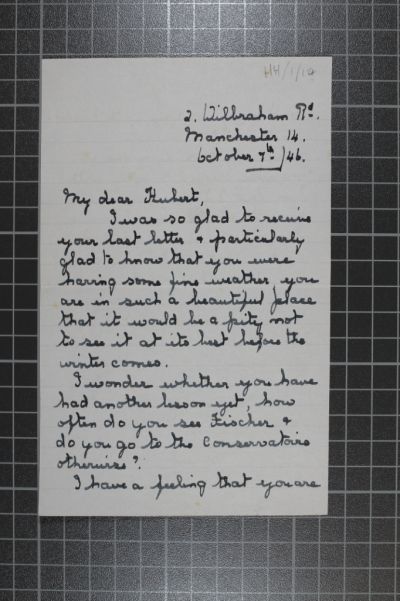 HH/1/19
2. Wilbraham Rd.
Manchester 14.
October 7th/46.
My dear Hubert,
I was so glad to receive
your last letter & particularly
glad to know that you were
having some fine weather, you
are in such a beautiful place
that it would be a pity not
to see it at its best before the
winter comes.
I wonder whether you have
had another lesson yet, how
often do you see Fischer &
do you go to the Conservatoire
otherwise?
I have a feeling that you are